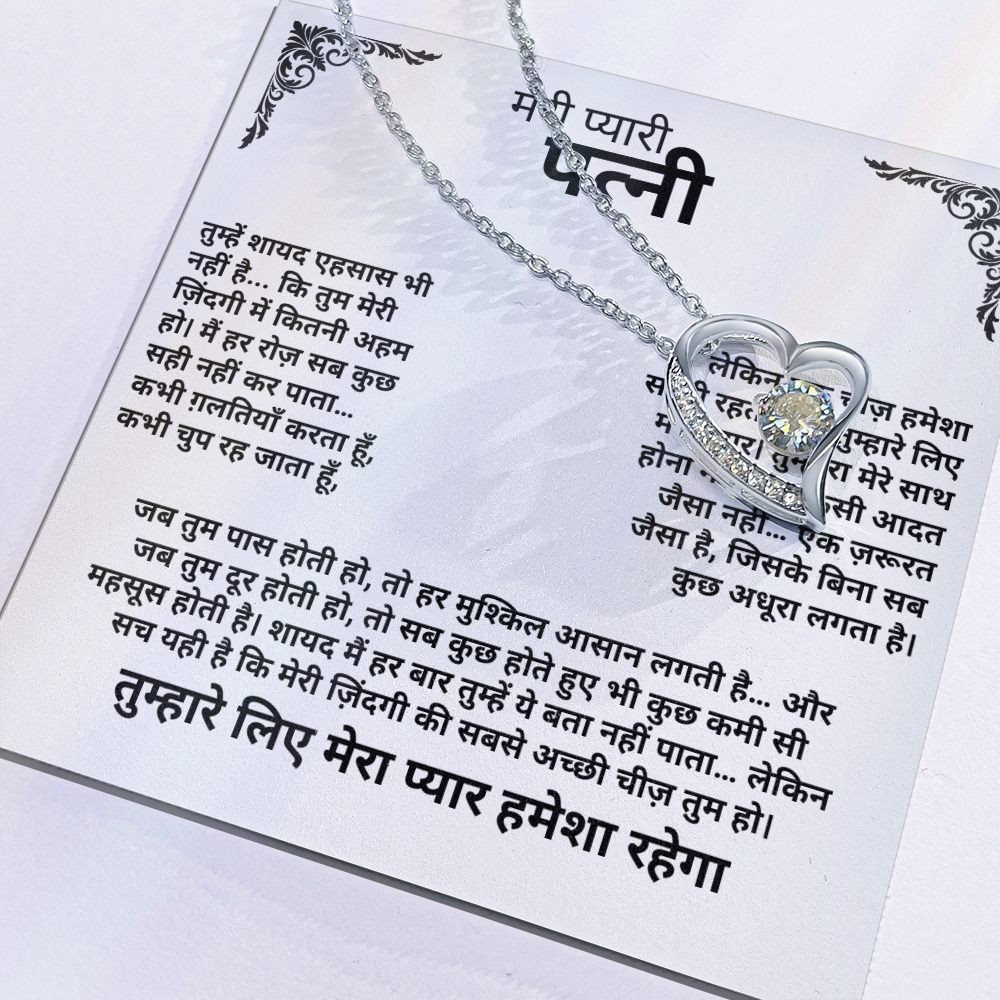 मेरी प्यारी
पत्नी
तुम्हें शायद एहसास भी
नहीं है... कि तुम मेरी
ज़िंदगी में कितनी अहम
हो। मैं हर रोज़ सब कुछ
सही नहीं कर पाता...
कभी ग़लतियाँ करता हूँ,
कभी चुप रह जाता हूँ,
लेकिन चीज़ हमेशा
तुम्हारे लिए
मेरे साथ
होना आदत
जैसा नहीं... एक ज़रूरत
जैसा है, जिसके बिना सब
कुछ अधूरा लगता है।
जब तुम पास होती हो, तो हर मुश्किल आसान लगती है... और
जब तुम दूर होती हो, तो सब कुछ होते हुए भी कुछ कमी सी
महसूस होती है। शायद मैं हर बार तुम्हें ये बता नहीं पाता... लेकिन
सच यही है कि मेरी ज़िंदगी की सबसे अच्छी चीज़ तुम हो।
तुम्हारे लिए मेरा प्यार हमेशा रहेगा